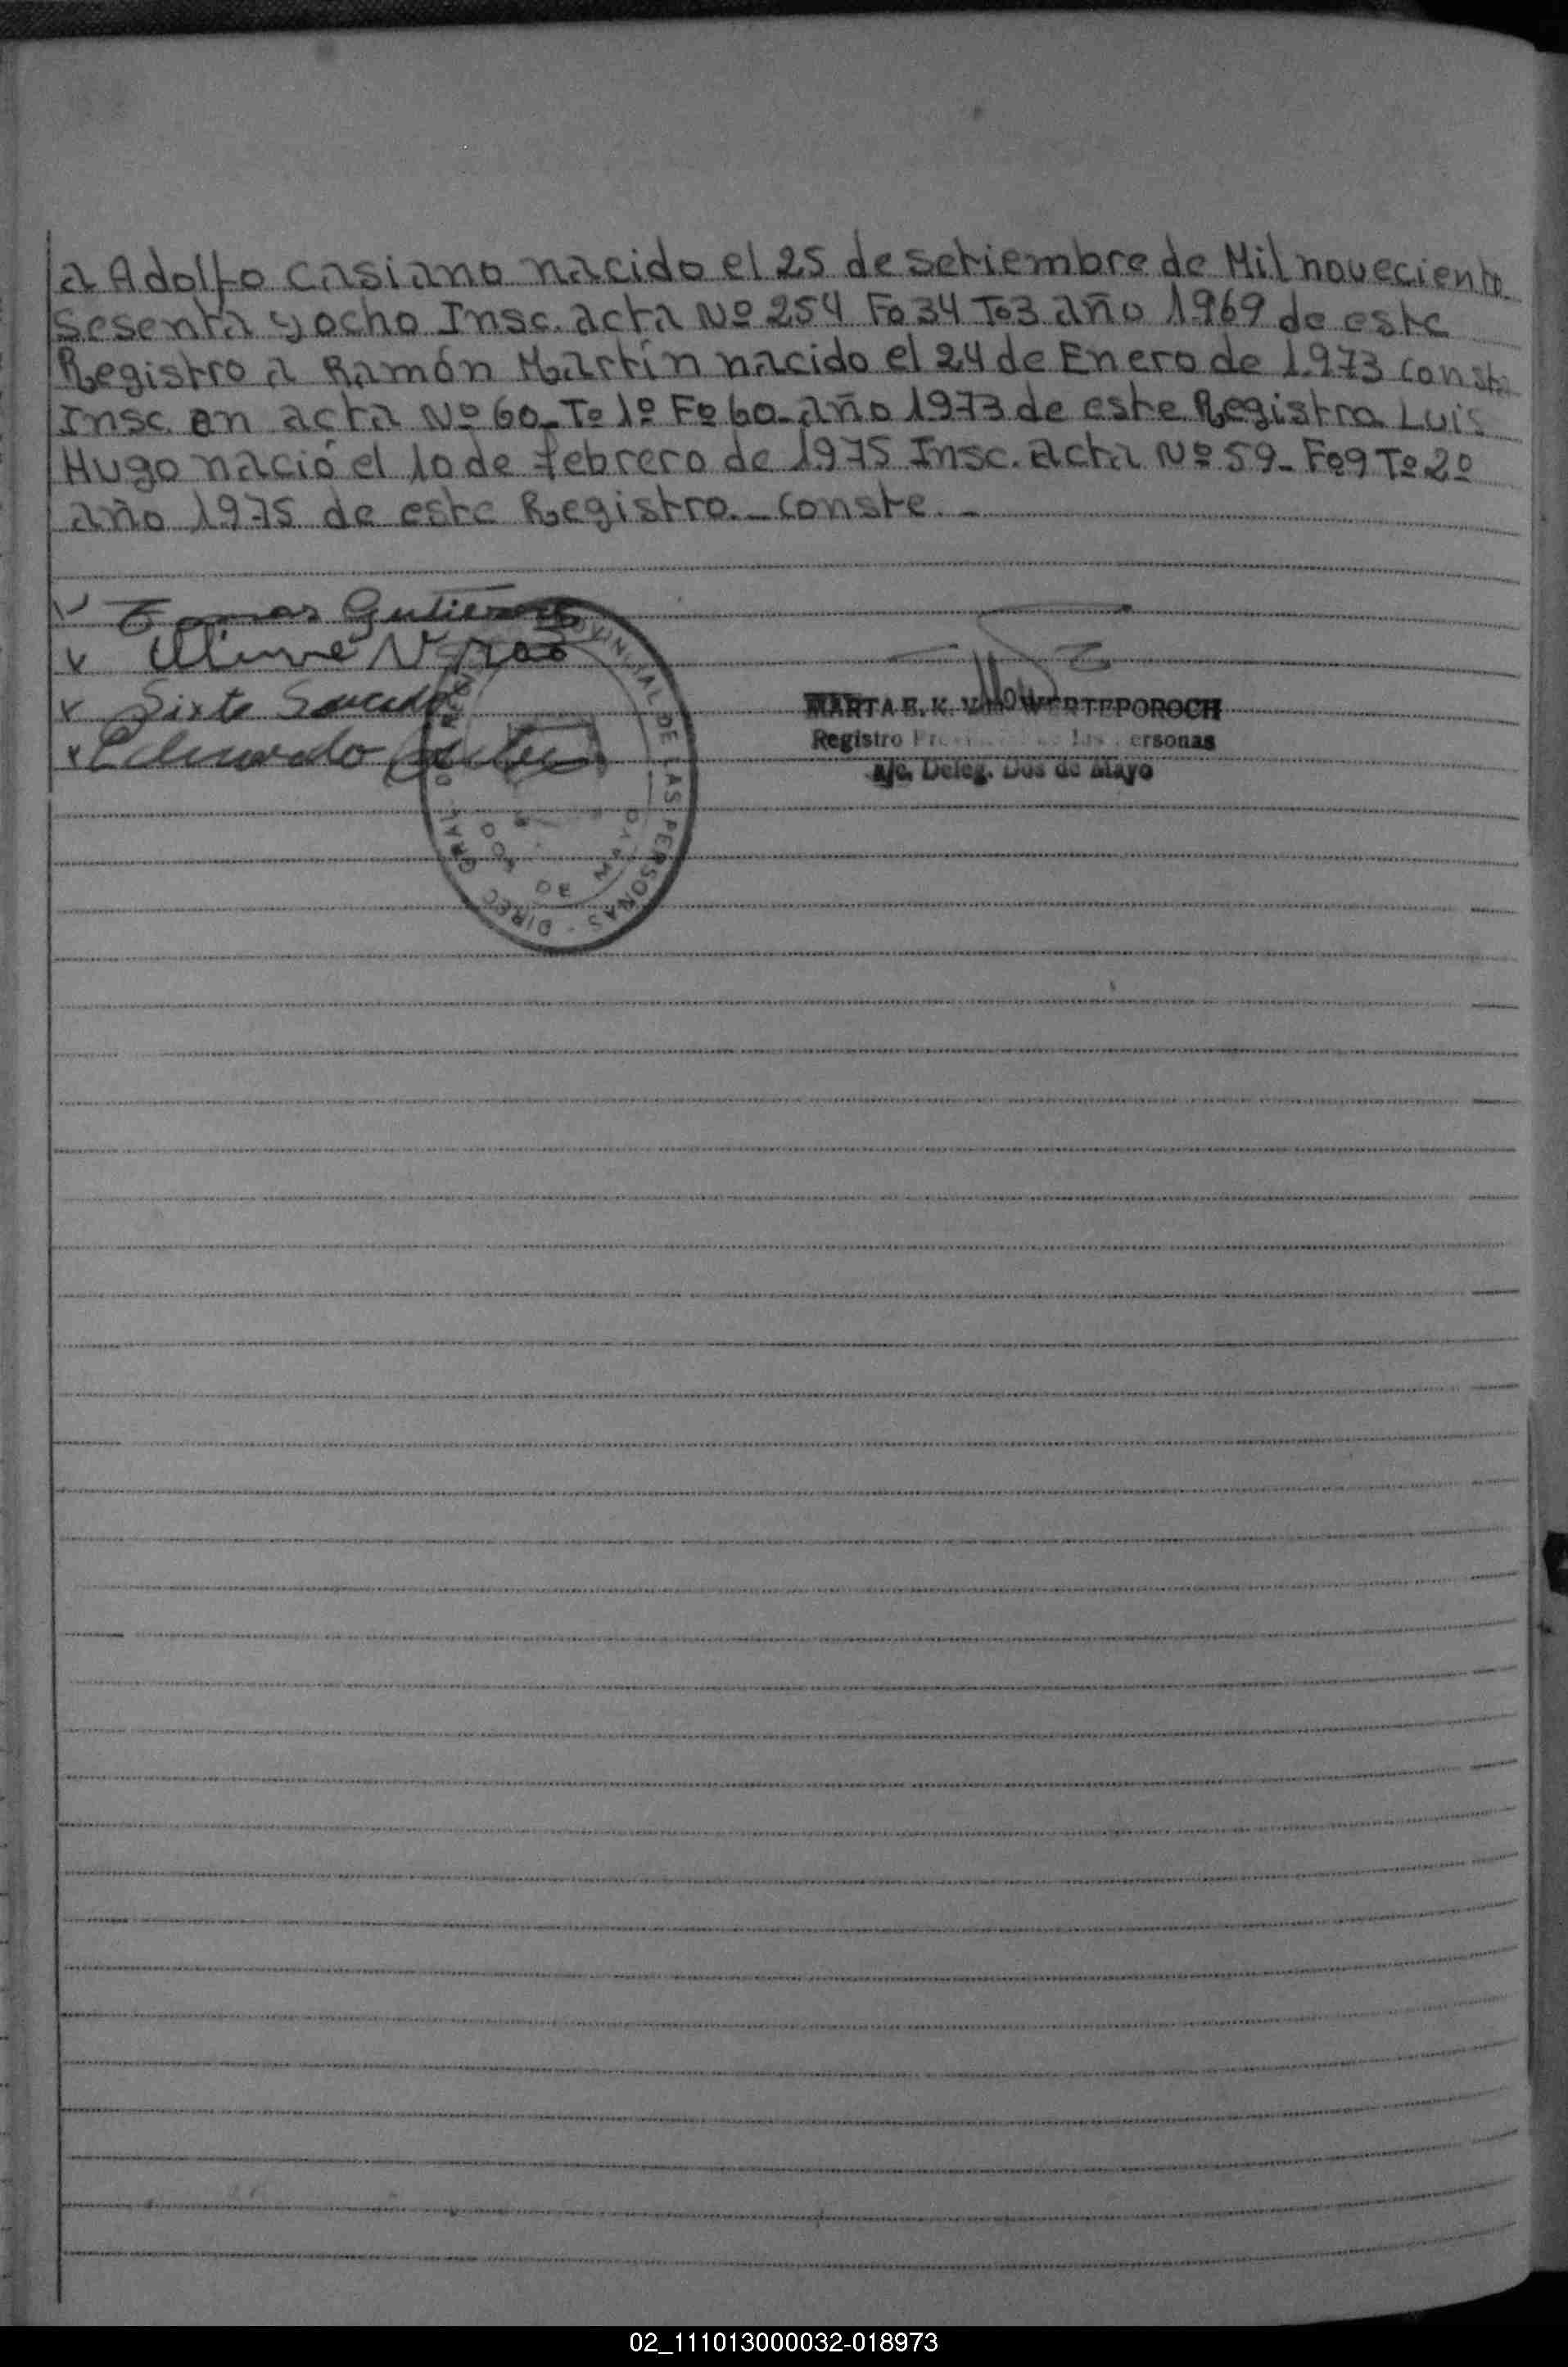 a Adolfo Casiano nacido el 25 de setiembre de Mil noveciento
Sesenta y ocho Insc. acta Nº 254 Fº 34 Tº3 año 1969 de este
Registro a Ramón Martín nacido el 24 de Enero de 1.973 consta
Insc. en acta Nº 60_ Tº 1º Fº 60_ año 1973 de este Registro Luis
Hugo nació el 10 de febrero de 1975 Insc. acta Nº 59_ Fº9 Tº 2º
año 1975 de este Registro._ Conste._
Tomas Gutierrez
Sixto
Eduardo
MARTA E. K. WERTEPOROCH
Registro las ersonas
a/c. Deleg. Dos de Mayo
DE LAS PERSONAS - DIREC GRAL
02_111013000032-018973